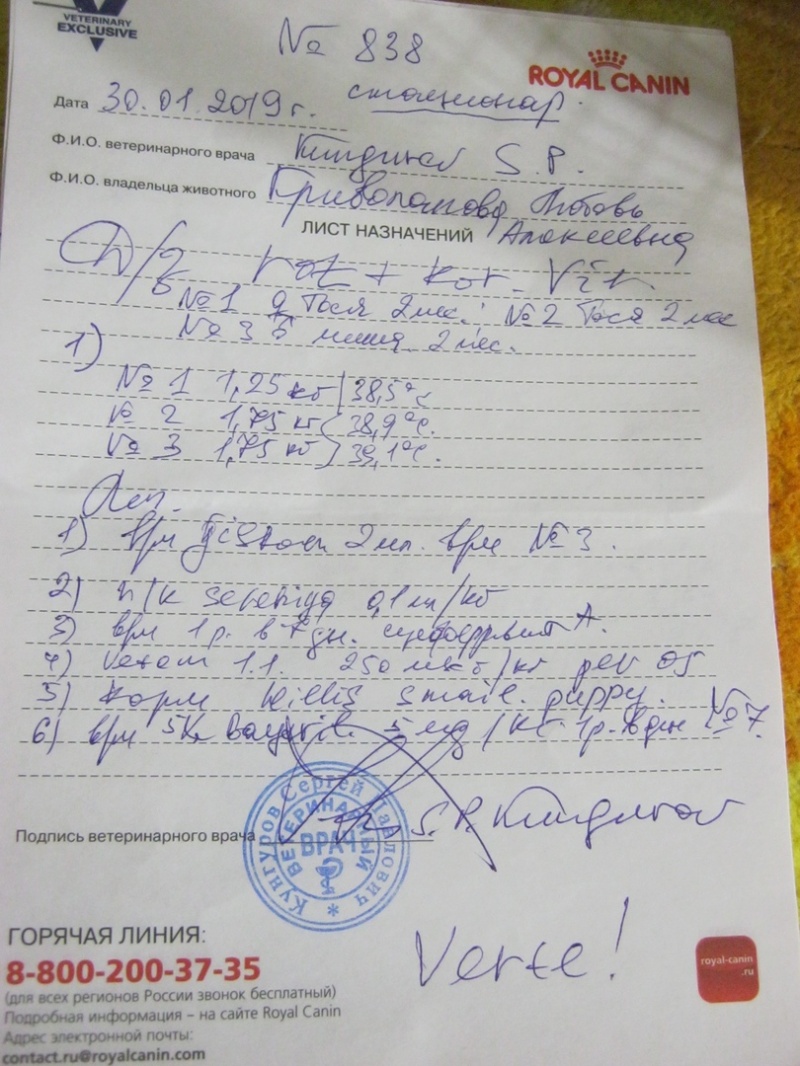 VETERINARY
EXCLUSIVE
№ 838
ROYAL CANIN
Дата 30.01.2019 г. стационар.
Ф.И.О. ветеринарного врача S. P.
Ф.И.О. владельца животного Любовь
ЛИСТ НАЗНАЧЕНИЙ Алексеевна
D/S rot + kor - Vir.
№ 1 Тося 2 мес.; № 2 Тося 2 мес
№ 3 2 мес.
1)
№ 1 1,25 кг 38,5°C
№ 2 1,75 кг 38,9°C.
№ 3 1,75 кг 39,1°C.
1) в/м 2 мл. в/м № 3.
2) п/к 0,1 мл/кг
3) в/м 1 р. в 7 дн. A.
4) Vetom 1.1. 250 /кг per os
5) Корм small. puppy.
6) в/м 5% 5 мg/кг. 1р. в день №7.
Подпись ветеринарного врача S. P.
Кунгуров Сергей Павлович
ВЕТЕРИНАРНЫЙ
ВРАЧ
Verte!
ГОРЯЧАЯ ЛИНИЯ:
8-800-200-37-35
(для всех регионов России звонок бесплатный)
Подробная информация – на сайте Royal Canin
Адрес электронной почты:
contact.ru@royalcanin.com
royal-canin
.ru